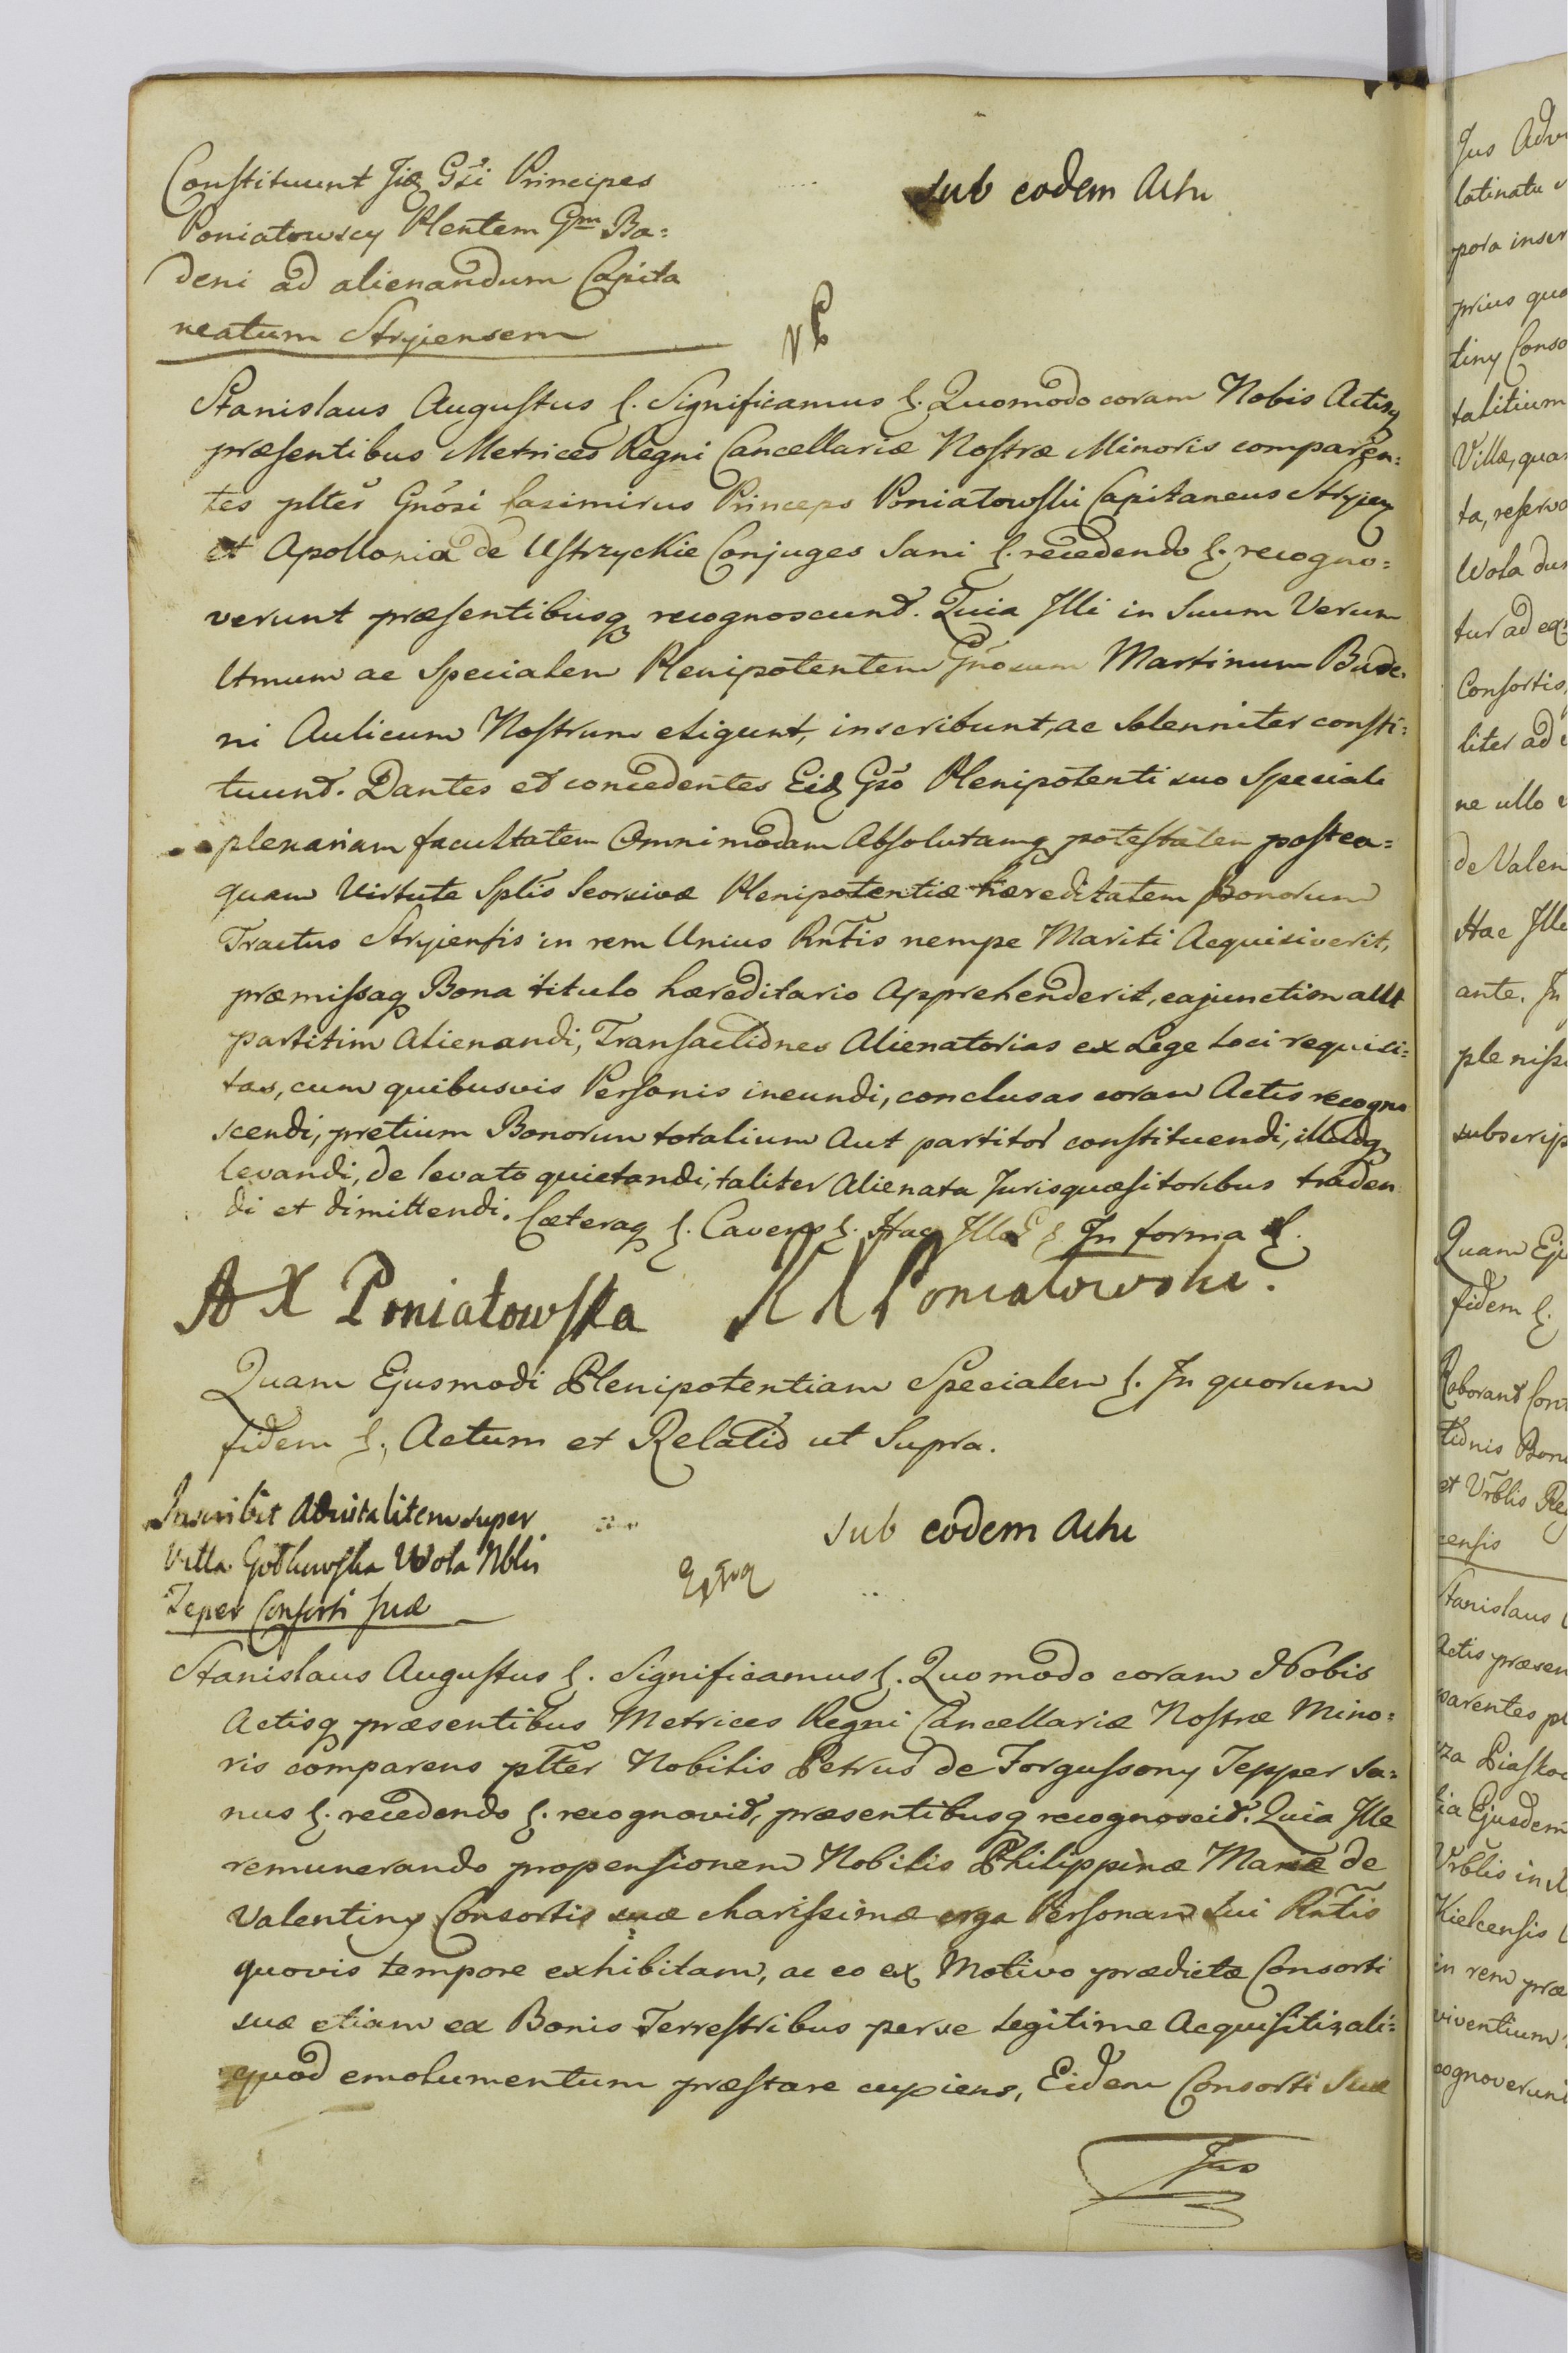 Constituunt Gsi Principes
Poniatowscy Plentem Gm Ba=
deni ad alienandum Capita
neatum Stryiensem
sub eodem Actu
Stanislaus Augustus &. Significamus &. Quomodo coram Nobis Actisq
præsentibus Metrices Regni Cancellariæ Nostræ Minoris comparen=
tes plter Gnosi Casimirus Princeps Poniatowski Capitaneus Stryien
et Apollonia de Ustrzyckie Conjuges Sani &. recedendo &. recogno=
verunt præsentibusq recognoscunt. Quia Illi in Suum Verum
Ltmum ac Specialem Plenipotentem Gnosum Martinum Bade=
ni Aulicum Nostrum eligunt, inscribunt, ac Solenniter consti=
tuunt. Dantes et concedentes Eid Gso Plenipotenti suo Speciali
plenariam facultatem Omnimodam Absolutamq potestatem postea=
quam Virtute Splis Seorsivæ Plenipotentiæ hæreditatem Bonorum
Tractus Stryiensis in rem Unius Rntis nempe Mariti Acquisiverit,
præmissaq Bona titulo hæreditario Apprehenderit, ea junctim aut
partitim Alienandi, Transactiones Alienatorias ex Lege Loci requisi=
tas, cum quibusvis Personis ineundi, conclusas coram Actis recogno
scendi, pretium Bonorum totalium Aut partitor constituendi, illudq
levandi, de levato quietandi, taliter Alienata Jurisquæsitoribus traden
di et dimittendi. Cæteraq &. Cavens &. Hac Illa & &. In forma &.
A X Poniatowska K X Poniatowski.
Quam Ejusmodi Plenipotentiam Specialem &. In quorum
fidem &. Actum et Relatio ut Supra.
Inscribit Advitalitem super
Villa Gothowska Wola Nblis
Teper Consorti suæ
sub eodem Actu
Stanislaus Augustus &. Significamus &. Quomodo coram Nobis
Actisq præsentibus Metrices Regni Cancellariæ Nostræ Mino=
ris comparens plter Nobilis Petrus de Forgussony Tepper Sa=
nus &. recedendo &. recognovit, præsentibusq recognoscit. Quia Ille
remunerando propensionem Nobilis Philippinæ Mariæ de
Valentiny Consortis suæ charissimæ erga Personam Sui Rntis
quovis tempore exhibitam, ac eo ex Motivo prædictæ Consorti
suæ etiam ex Bonis Terrestribus per se Legitime Acquisitis, ali=
quod emolumentum præstare cupiens, Eidem Consorti Suæ
Jus
Jus
latinatu
pora inser
prius quo
tiny Conso
talitium
Villæ, quam
ta, reserva
Wola
tur ad
Consortis,
liter ad
ne ullo
de Valen
Hac Ille
ante. In
pleniss
subscrip
Quam Eju
fidem &.
Roborant Cont
tionis Bono
et Vrblis
censis
Stanislaus
Actis præsen
parentes pl
Piaskow
Ejusdem
Vrblis in
Kielcensis
in rem præ
viventium
cognoverunt